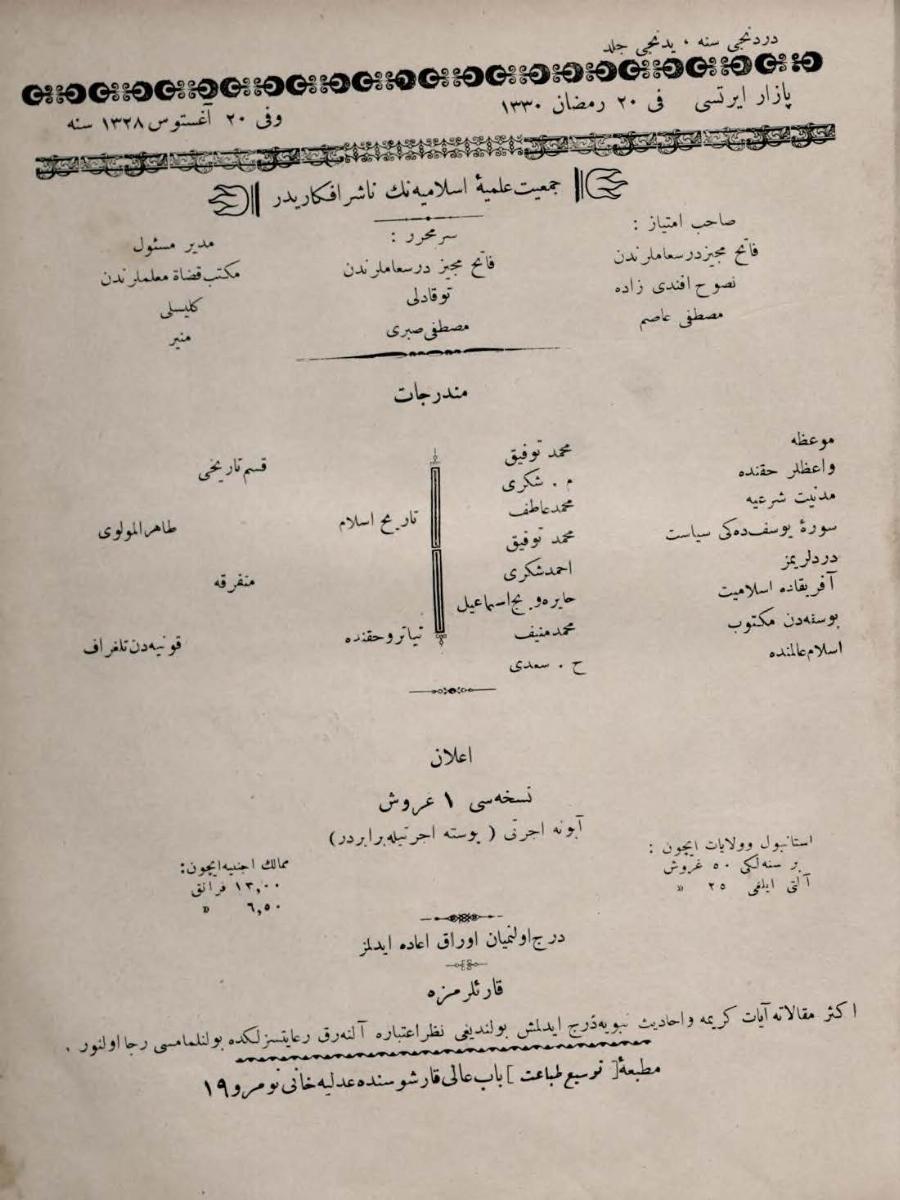 دردنجی سنه ، یدنجی جلد
پازار ایرتسی فی ٢٠ رمضان ١٣٣٠
وفی ٢٠ آغستوس ١٣٢٨ سنه
جمعیت علمیهٔ اسلامیه نك ناشر افکاریدر
صاحب امتیاز :
فاتح مجیز درسعاملرندن
نصوح افندی زاده
مصطفی عاصم
سرمحرر :
فاتح مجیز درسعاملرندن
توقادلی
مصطفی صبری
مدیر مسئول
مکتب قضاة معلملرندن
کلیسلی
منیر
مندرجات
موعظه محمد توفیق
واعظلر حقنده م . شکری
مدنیت شرعیه محمد عاطف
سورهٔ یوسف ده کی سیاست محمد توفیق
دردلریمز احمد شکری
آفریقاده اسلامیت اسماعیل
بوسنه دن مکتوب محمد منیف
اسلام عالمنده ح . سعدی
قسم تاریخی
تاریخ اسلام طاهر المولوی
متفرقه
تیاترو حقنده قونیه دن تلغراف
اعلان
نسخه سی ١ غروش
آبونه اجرتی ( پوسته اجرتیله برابردر )
استانبول وولایات ایچون :
بر سنه لکی ٥٠ غروش
آلتی ایلغی ٢٥ »
ممالك اجنبیه ایچون :
١٣,٠٠ فرانق
٦,٥٠ »
درج اولنمیان اوراق اعاده ایدلمز
قارئلرمزه
اکثر مقالاته آیات کریمه واحادیث نبویه درج ایدلمش بولندیغی نظر اعتباره آلنه رق رعایتسزلکده بولنلمامسی رجا اولنور .
مطبعهٔ [ توسیع طباعت ] باب عالی قارشوسنده عدلیه خانی نومرو ١٩